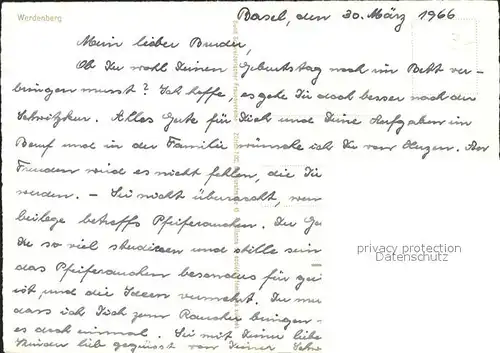 Werdenberg
Basel, den 30. März 1966
Mein lieber Bruder,
Ob Du wohl Deinen Geburtstag noch im Bett ver-
bringen musst? Ich hoffe es gehe Dir doch besser nach der
Alles Gute für Dich und Deine Aufgaben im
Beruf und in der Familie wünsche ich Dir von Herzen. An
Freuden wird es nicht fehlen, die Di
werden. – Sei nicht überrascht, wen
beilage betreffs Pfeiferauchen. Du
Du so viel studieren und stille sein
das Pfeiferauchen besonders für
ist und die Ideen vermehrt. Du mu
dass ich Dich zum Rauchen bringen
es doch einmal. Sei mit Deiner liebe
Kinder lieb gegrüsst von Deiner
privacy protection
Datenschutz